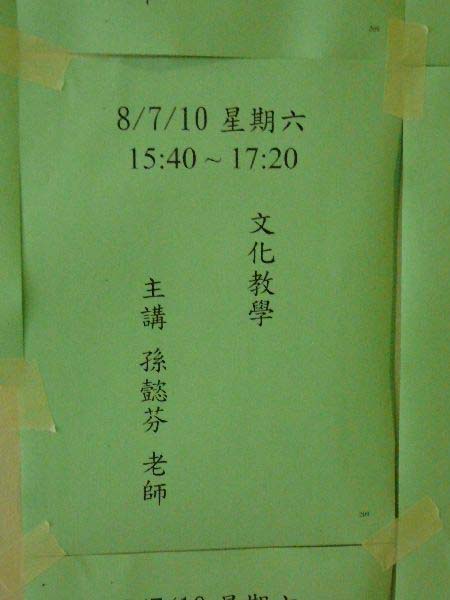 8/7/10 星期六
15:40 ~ 17:20
文化教學
主講 孫懿芬 老師